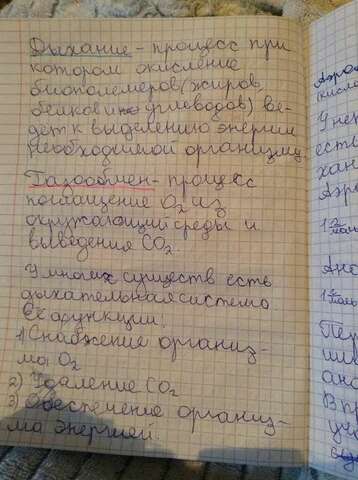 Дыхание - процесс при
котором окисление
биополемеров (жиров,
белков и углеводов) ве-
дет к выделению энергии
необходимой организму.
Газообмен - процесс
поглащение O₂ из
окружающий среды и
выведения CO₂.
У многих существ есть
дыхательная система.
Её функции:
1) Снабжение организ-
ма O₂
2) Удаление CO₂
3) Обеспечение организ-
ма энергией.
Аэро
(кисло
У нек
есть
хан
Аэр
1 моль
Ана
1 моль
Пер
ши
ана
В пр
уча